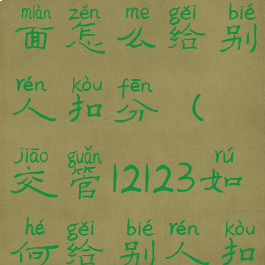 miàn zěn me gěi bié
面怎么给别
rén kòu fēn
人扣分（
jiāo guǎn rú
交管12123如
hé gěi bié rén kòu
何给别人扣